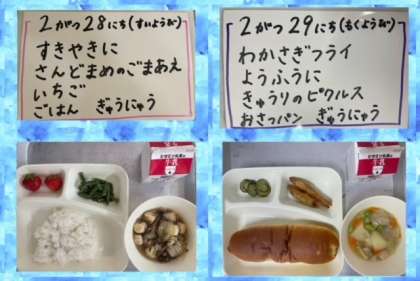 2がつ28にち(すいようび)
すきやきに
さんどまめのごまあえ
いちご
ごはん ぎゅうにゅう
2がつ29にち(もくようび)
わかさぎフライ
ようふうに
きゅうりのピクルス
おさつパン ぎゅうにゅう